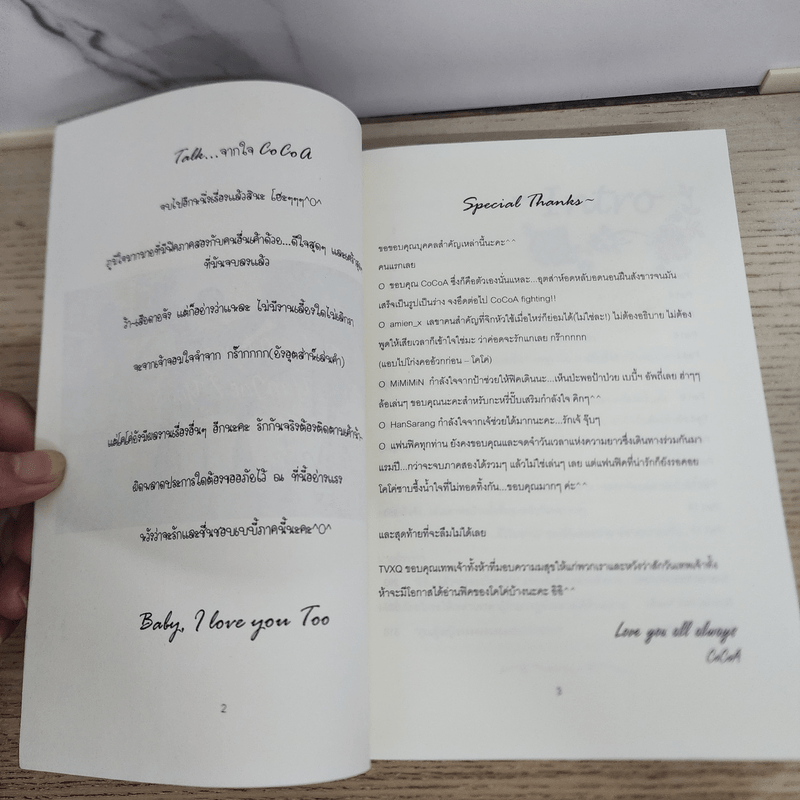 Talk...จากใจ CoCoA
จบไปอีกหนึ่งเรื่องแล้วสินะ โฮะๆๆๆ^O^
ภูมิใจมากมายที่มีฟิคภาคสองกับคนอื่นเค้าด้วย...ดีใจสุดๆ และ
ที่มันจบลงแล้ว
ว้า-เสียดายจัง แต่ก็อย่างว่าแหละ ไม่มีงานเลี้ยงใดไม่เลิกรา
จะจากเจ้าจอมใจจำจาก กร๊ากกกก(ยังอุตส่าห์เล่นคำ)
แต่โคโค่ยังมีผลงานเรื่องอื่นๆ อีกนะคะ รักกันจริงต้องติดตามเค้านะ
ผิดพลาดประการใดต้องขออภัยไว้ ณ ที่นี้อย่างแรง
หวังว่าจะรักและชื่นชอบเบบี้ภาคนี้นะคะ^O^
Baby, I love you Too
2
Special Thanks~
ขอขอบคุณบุคคลสำคัญเหล่านี้นะคะ^^
คนแรกเลย
O ขอบคุณ CoCoA ซึ่งก็คือตัวเองนั่นแหละ...อุตส่าห์อดหลับอดนอนฝืนสังขารจนมัน
เสร็จเป็นรูปเป็นร่าง จงอึดต่อไป CoCoA fighting!!
O amien_x เลขาคนสำคัญที่จิกหัวใช้เมื่อไหร่ก็ย่อมได้(ไม่ใช่ละ!) ไม่ต้องอธิบาย ไม่ต้อง
พูดให้เสียเวลาก็เข้าใจใช่มะ ว่าค่อดจะรักแกเลย กร๊ากกกก
(แอบไปโก่งคออ้วกก่อน – โคโค่)
O MiMiMiN กำลังใจจากป้าช่วยให้ฟิคเดินนะ...เห็นปะพอป้าป่วย เบบี้ฯ อัพถี่เลย ฮ่าๆๆ
ล้อเล่นๆ ขอบคุณนะคะสำหรับกะหรี่ปั๊บเสริมกำลังใจ คิกๆ^^
O HanSarang กำลังใจจากเจ้ช่วยได้มากนะคะ...รักเจ้ จุ๊บๆ
O แฟนฟิคทุกท่าน ยังคงขอบคุณและจดจำวันเวลาแห่งความยาวซึ่งเดินทางร่วมกันมา
แรมปี...กว่าจะจบภาคสองได้รวมๆ แล้วไม่ใช่เล่นๆ เลย แต่แฟนฟิคที่น่ารักก็ยังรอคอย
โคโค่ซาบซึ้งน้ำใจที่ไม่ทอดทิ้งกัน...ขอบคุณมากๆ ค่ะ^^
และสุดท้ายที่จะลืมไม่ได้เลย
TVXQ ขอบคุณเทพเจ้าทั้งห้าที่มอบความมสุขให้แก่พวกเราและหวังว่าสักวันเทพเจ้าทั้ง
ห้าจะมีโอกาสได้อ่านฟิคของโคโค่บ้างนะคะ อิอิ^^
Love you all always
CoCoA
3